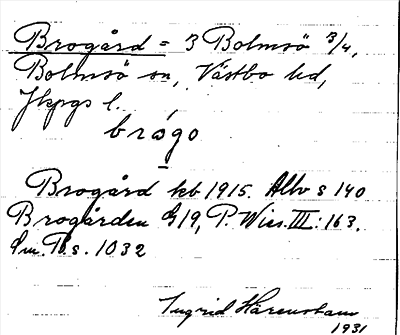 Brogård = 3 Bolmsö 3/4,
Bolmsö sn, Västbo hd,
Jkpgs l.
brógo
Brogård kb 1915. Allv s 140
Brogården G19, P. Wies. III: 163.
Sm. T. s. 1032
Ingrid Härenstam
1931